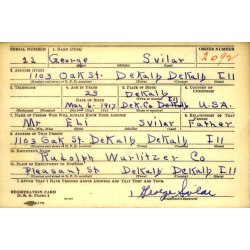 SERIAL NUMBER 1. NAME (Print) ORDER NUMBER
22 George Svilar 2092
2. ADDRESS (Print)
1103 Oak St. DeKalb DeKalb Ill
3. TELEPHONE 4. AGE IN YEARS 5. PLACE OF BIRTH 6. COUNTRY OF CITIZENSHIP
23 DeKalb
DATE OF BIRTH
May 6-1917 Ill U.S.A.
7. NAME OF PERSON WHO WILL ALWAYS KNOW YOUR ADDRESS 8. RELATIONSHIP OF THAT PERSON
Mr Eli Svilar Father
9. ADDRESS OF THAT PERSON
1103 Oak St. DeKalb DeKalb Ill
10. EMPLOYER'S NAME
Rudolph Wurlitzer Co
11. PLACE OF EMPLOYMENT OR BUSINESS
Pleasant St. DeKalb DeKalb Ill
I AFFIRM THAT I HAVE VERIFIED ABOVE ANSWERS AND THAT THEY ARE TRUE.
REGISTRATION CARD
D. S. S. FORM 1
George Svilar